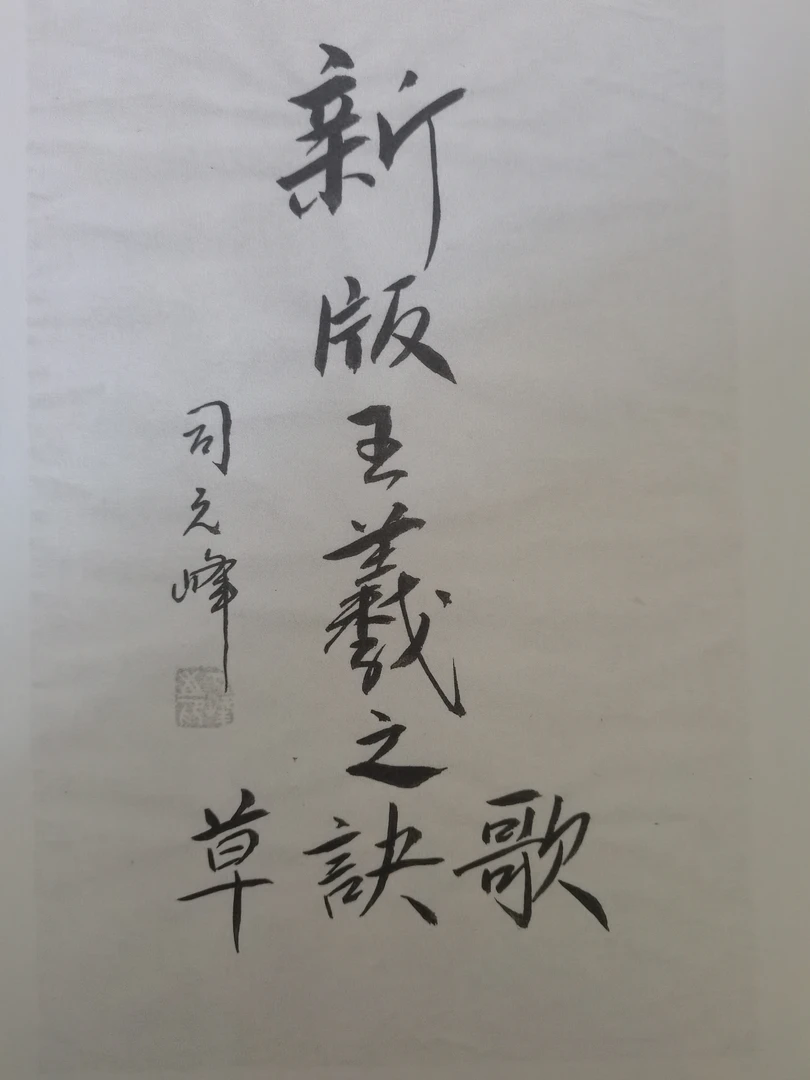 新版王羲之
草訣歌
司元峰